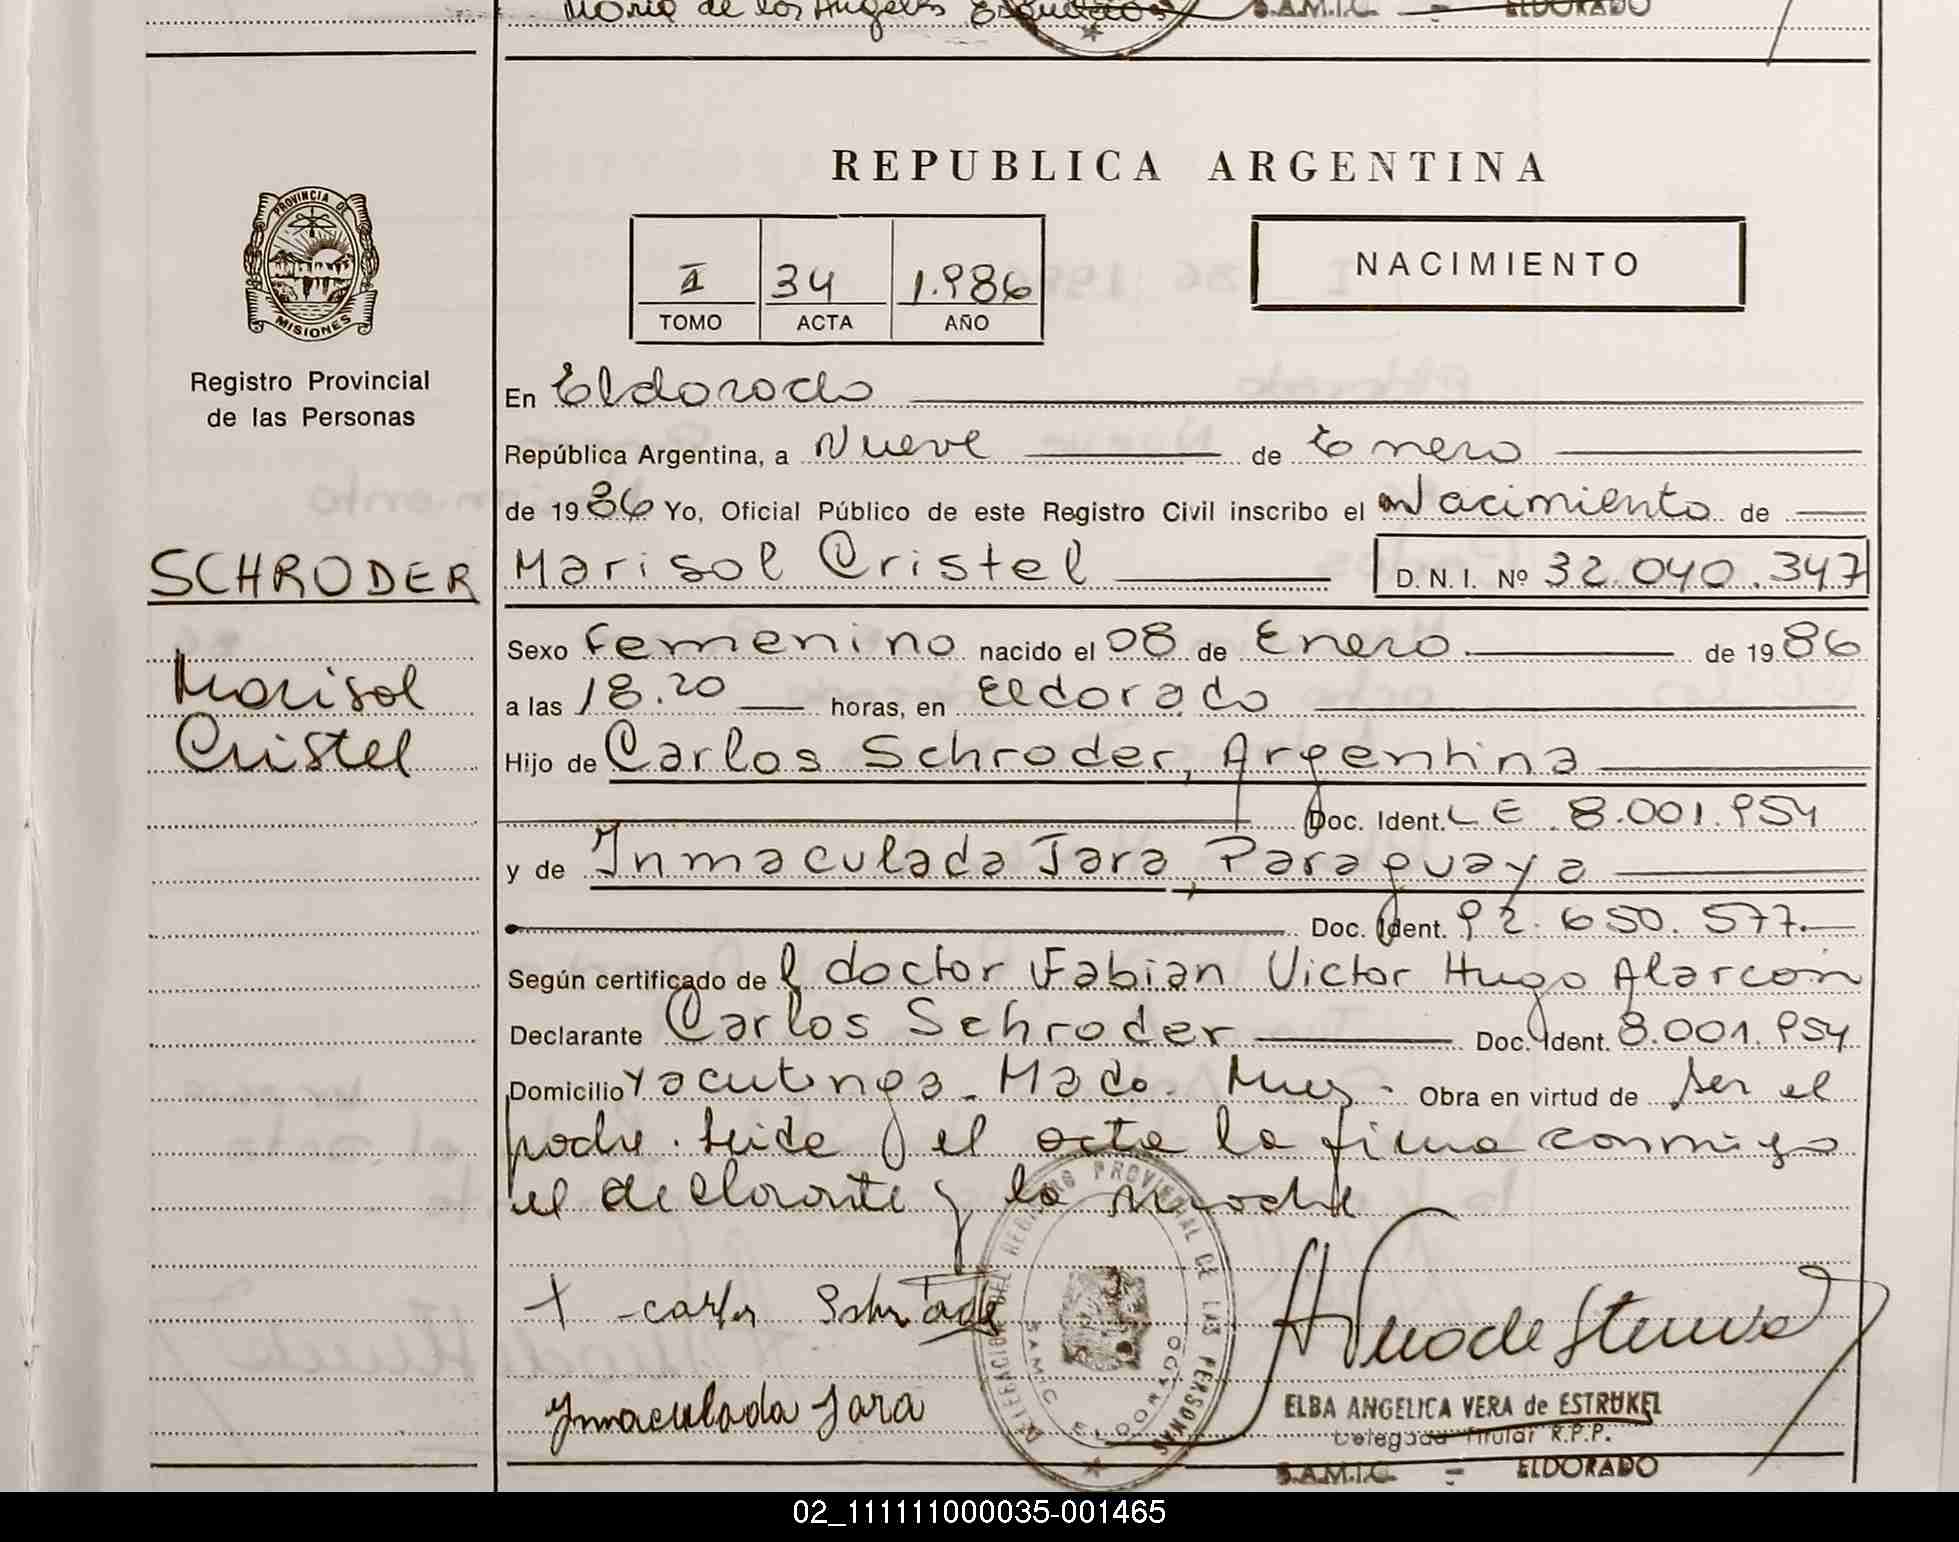 Maria de los Angeles
S.A.M.I.C. - ELDORADO
REPUBLICA ARGENTINA
PROVINCIA DE MISIONES
Registro Provincial
de las Personas
I 34 1.986
TOMO ACTA AÑO
NACIMIENTO
En Eldorado
República Argentina, a Nueve de Enero
de 1986 Yo, Oficial Público de este Registro Civil inscribo el Nacimiento de
SCHRODER
Marisol Cristel D. N. I. Nº 32.040.347
Marisol
Cristel
Sexo Femenino nacido el 08 de Enero de 1986
a las 18.20 horas, en Eldorado
Hijo de Carlos Schroder, Argentina
Doc. Ident. L E 8.001.954
y de Inmaculada Jara, Paraguaya
Doc. Ident. 92.650.577.
Según certificado del doctor Fabian Victor Hugo Alarcón
Declarante Carlos Schroder Doc. Ident. 8.001.954
Domicilio Yacutinga - Mado. Mnes. Obra en virtud de ser el
padre. Leida el acta la firma conmigo
el declarante y la madre
DELEGACION DEL REGISTRO PROVINCIAL DE LAS PERSONAS
S.A.M.I.C. ELDORADO
Inmaculada Jara
ELBA ANGELICA VERA de ESTRUKEL
Delegada Titular R.P.P.
S.A.M.I.C. - ELDORADO
02_111111000035-001465